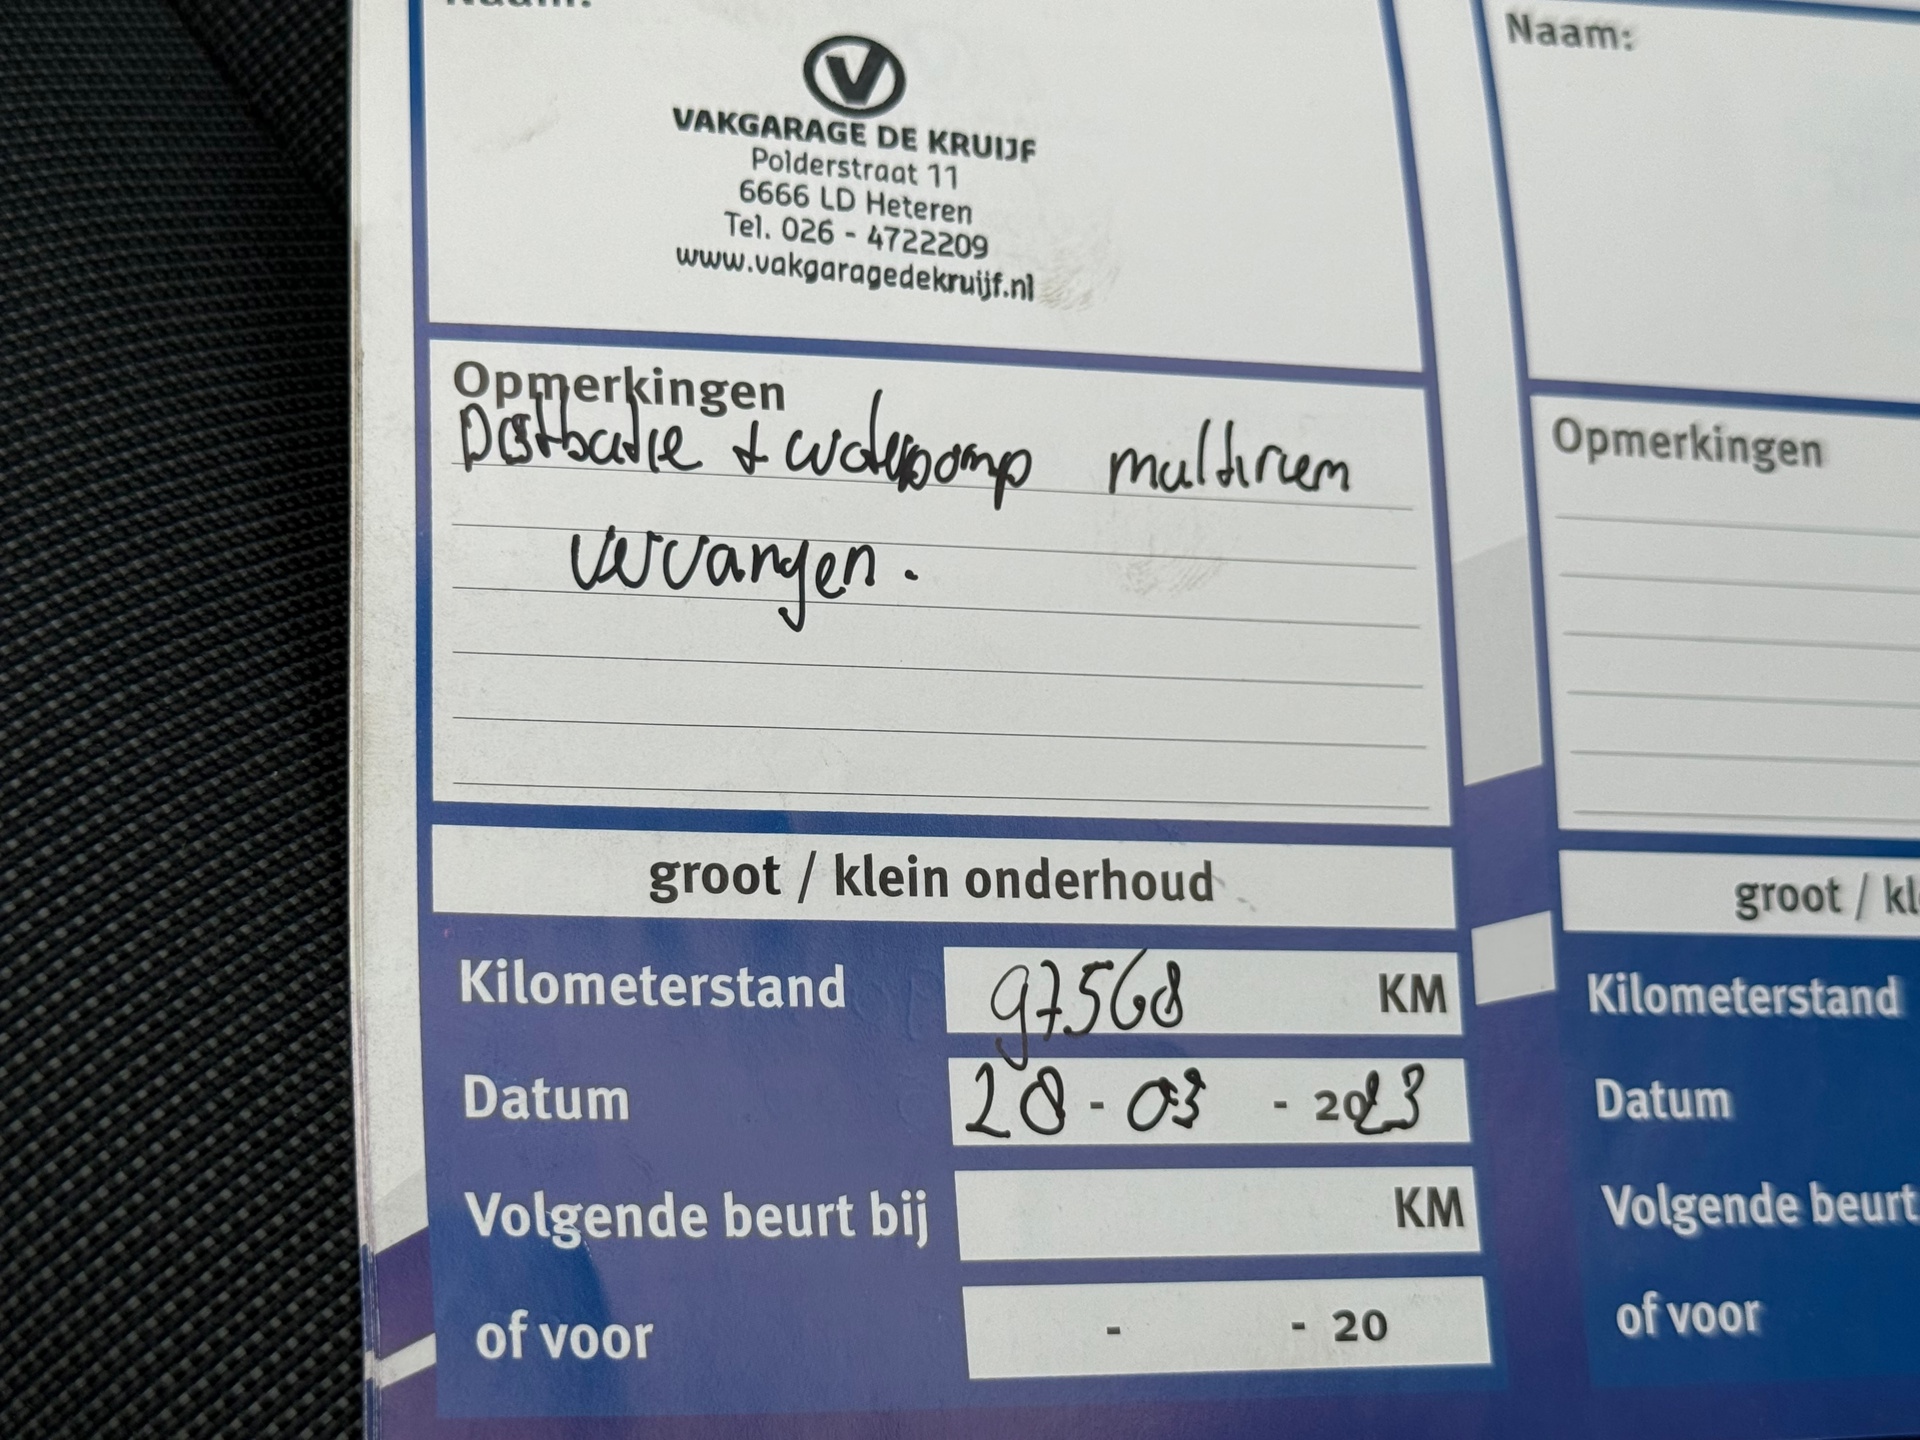 Naam:
VAKGARAGE DE KRUIJF
Polderstraat 11
6666 LD Heteren
Tel. 026 - 4722209
www.vakgaragedekruijf.nl
Opmerkingen
Distributie + waterpomp multiriem
vervangen.
groot / klein onderhoud
Kilometerstand 97568 KM
Datum 28 - 03 - 2023
Volgende beurt bij KM
of voor - - 20
Naam:
Opmerkingen
groot / kl
Kilometerstand
Datum
Volgende beurt
of voor